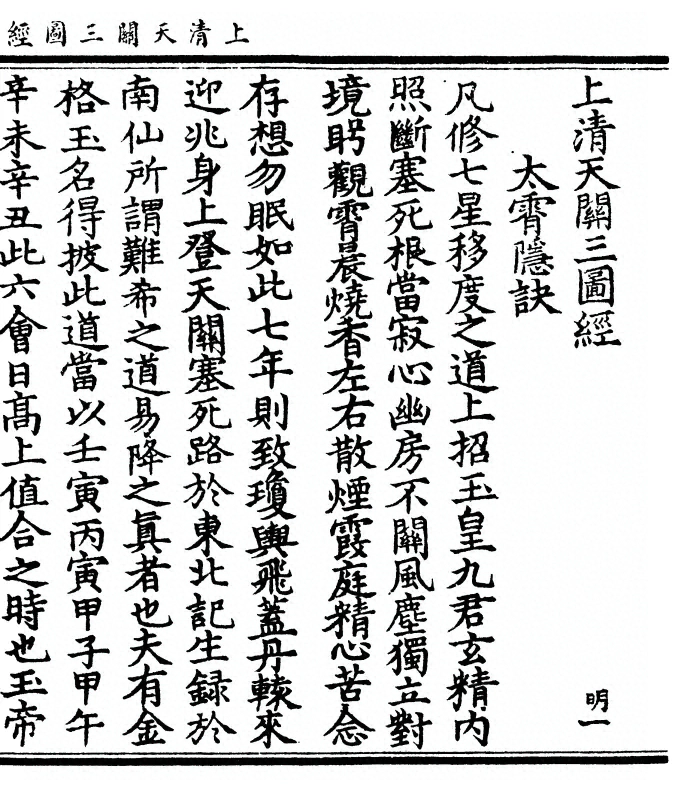 上清天關三圖經
上清天關三圖經
明一
太霄隱訣
凡修七星移度之道上招玉皇九君玄精内
照斷塞死根當寂心幽房不關風塵獨立對
境眄觀霄晨燒香左右散煙霞庭精心苦念
存想勿眠如此七年則致瓊輿飛蓋丹轅來
迎兆身上登天關塞死路於東北記生録於
南仙所謂難希之道易降之眞者也夫有金
格玉名得披此道當以壬寅丙寅甲子甲午
辛未辛丑此六會日髙上值合之時也玉帝